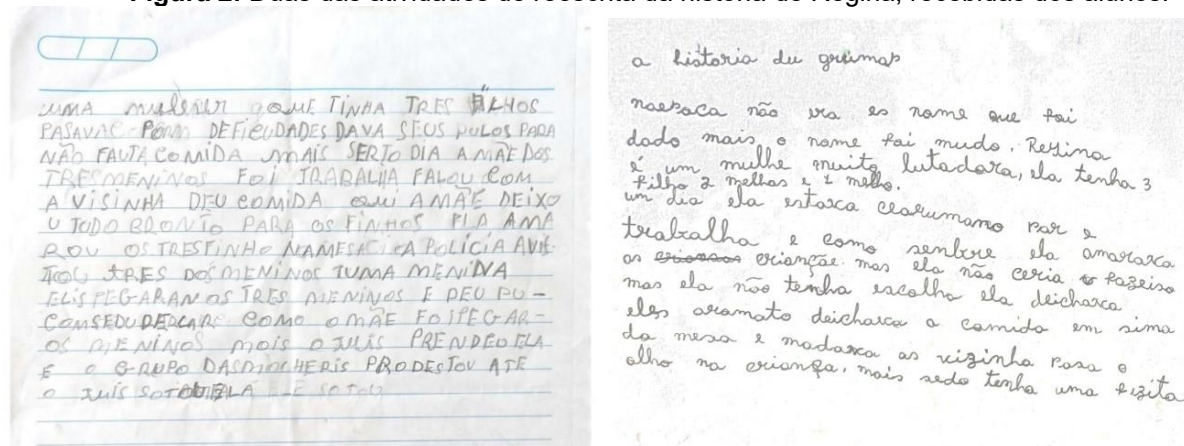 Figura 2. Duas das atividades de reescrita da história de Regina, recebidas dos alunos.
UMA mulhier QUE TINHA TRES FILHOS
PASAVAC POM DEFICUDADES DAVA SEUS PULOS PARA
NÃO FAUTA COMIDA MAIS SERTO DIA A MÃE DOS
TRESMENINOS FOI TRABALHA FALOU COM
A VISINHA DEU COMIDA QUI A MÃE DEIXO
U TODO PRONTO PARA OS FINHOS ELA AMA
ROU OS TRES FINHO NAMESA A POLICIA AVIH
TRES DOS MENINOS TUMA MENINA
ELIS PEGARAN OS TRES MENINOS E DEU PU-
COMO O MÃE FOI PEGAR-
OS MENINOS MOIS O JUIS PRENDEO ELA
E O GRUPO DAS PRODESTOU ATE
O JUIS SOTOU ELA E SOTOU
a historia du
não era es nome que foi
dado mais o nome foi mudo. Regina
é um mulhe muito lutadora, ela tenha 3
filho 2 melhas e 1 melho.
um dia ela estava para
trabalha e como senbre ela amarava
as crianças criançãe mas ela não ceria fazeiso
mas ela não tenha escolha ela deichava
eles aramato deichava a comida em sima
da mesa e madava as vizinha para o
olho na criança, mais sedo tenha uma fizita